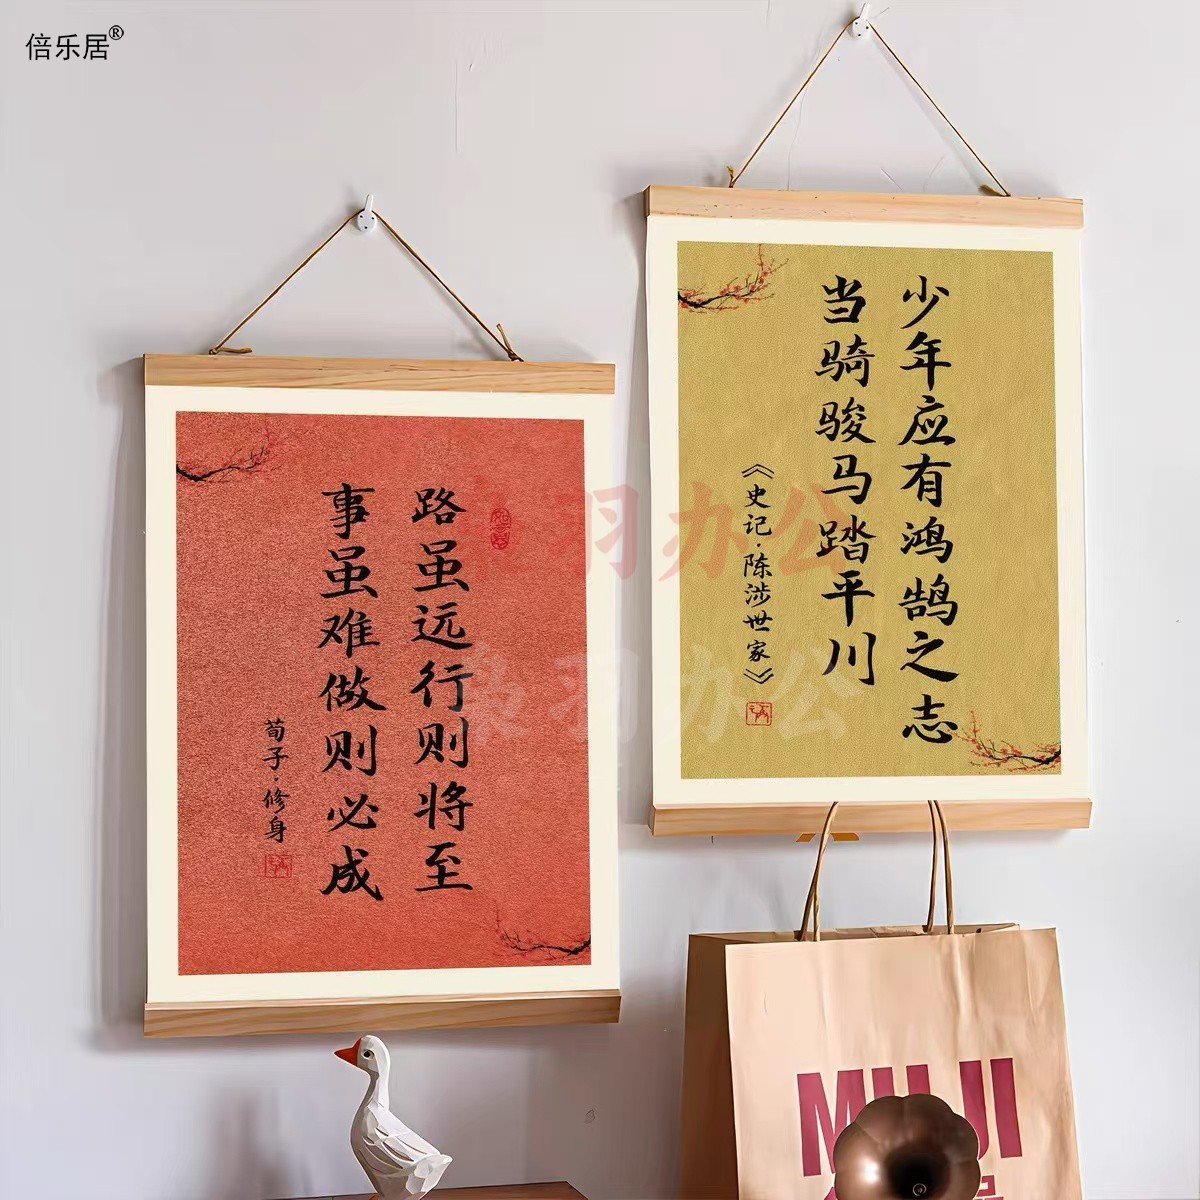 倍乐居®
路虽远行则将至
事虽难做则必成
荀子·修身
少年应有鸿鹄之志
当骑骏马踏平川
《史记·陈涉世家》
羽办公
枭羽办公
MUJI